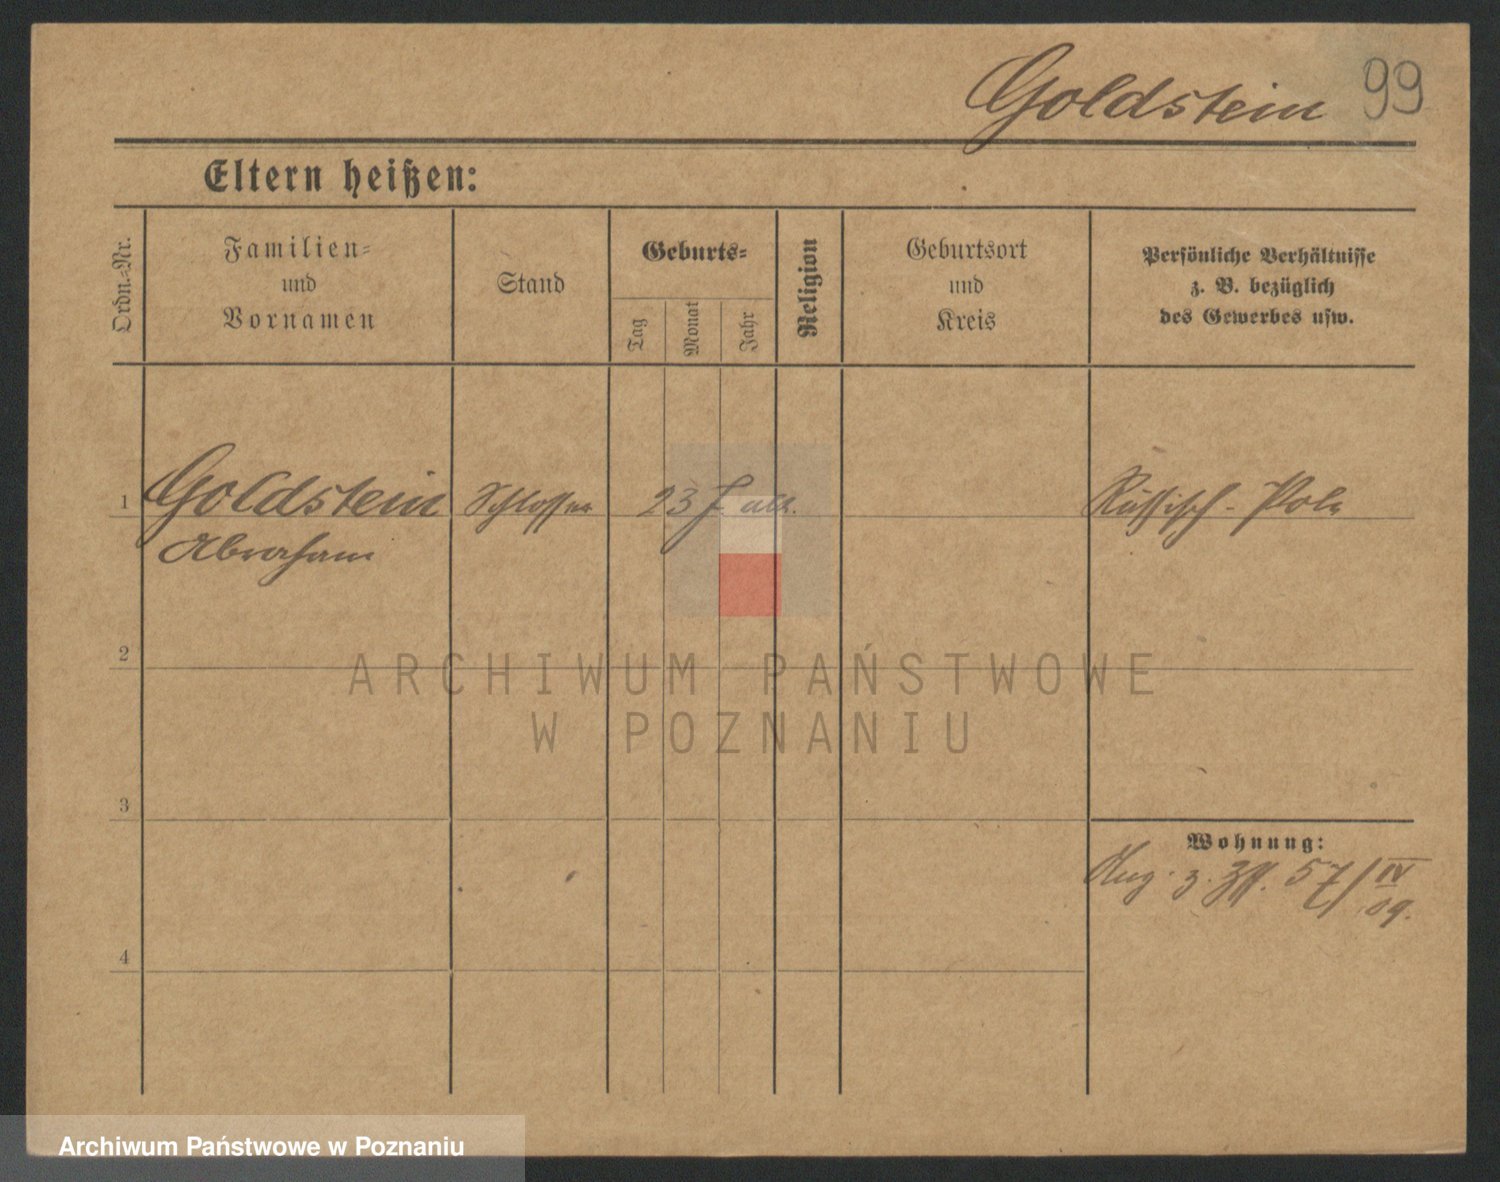 Goldstein 99
Eltern heißen:
Ordn.-Nr.
Familien-
und
Vornamen
Stand
Geburts-
Tag
Monat
Jahr
Religion
Geburtsort
und
Kreis
Persönliche Verhältnisse
z. B. bezüglich
des Gewerbes usw.
1 Goldstein Schlosser 23 J. alt. Russisch-Pole
Abraham
2
3
Wohnung:
57/IV
09.
4
ARCHIWUM PAŃSTWOWE
W POZNANIU
Archiwum Państwowe w Poznaniu